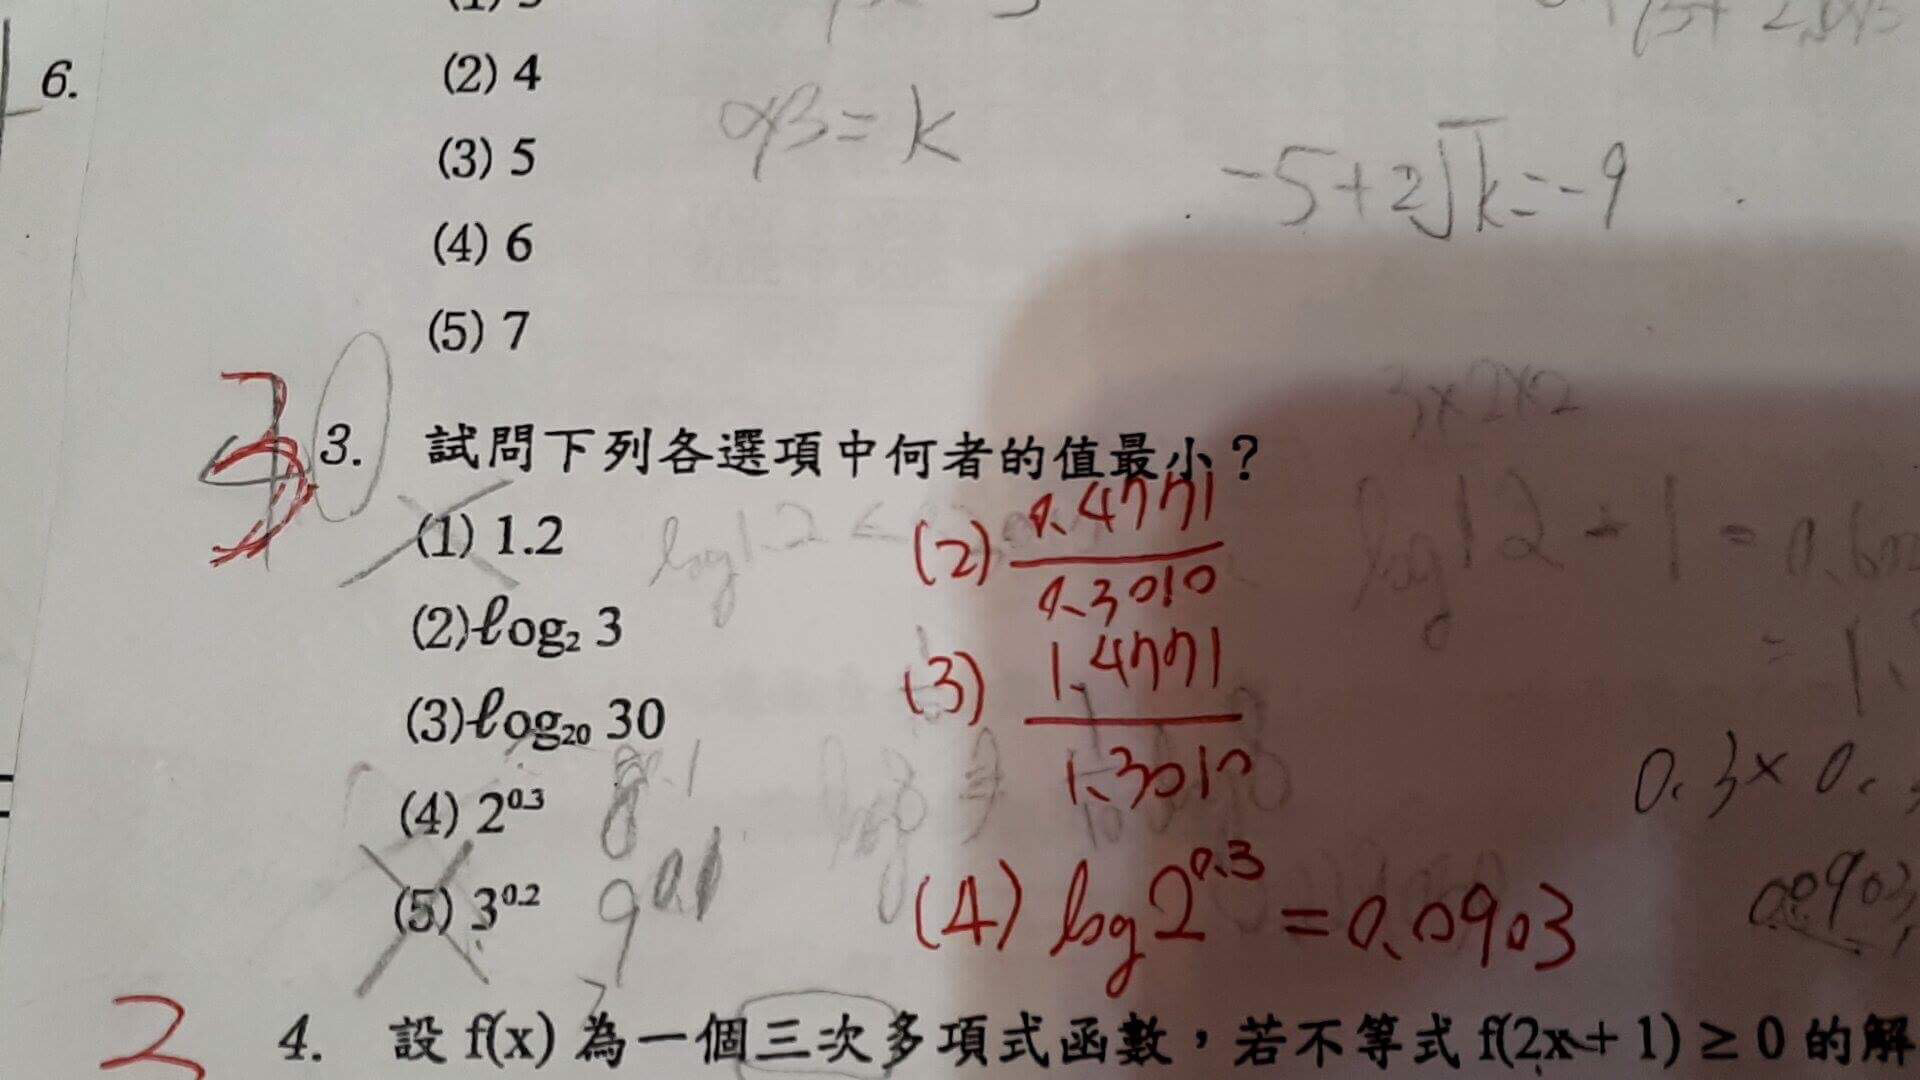 6.
(2) 4
αβ = k
(3) 5
-5+2√k = -9
(4) 6
(5) 7
3×2×2
3
3. 試問下列各選項中何者的值最小？
(1) 1.2
log1.2 <
(2) 0.4771/0.3010
log12 - 1 = 0.602
= 1.
(2) ℓog₂ 3
(3) ℓog₂₀ 30
(3) 1.4771/1.3010
(4) 2^0.3
0.3× 0.
(5) 3^0.2
9^0.1
(4) log2^0.3 = 0.0903
0.0903
2
4. 設 f(x) 為一個三次多項式函數，若不等式 f(2x + 1) ≥ 0 的解